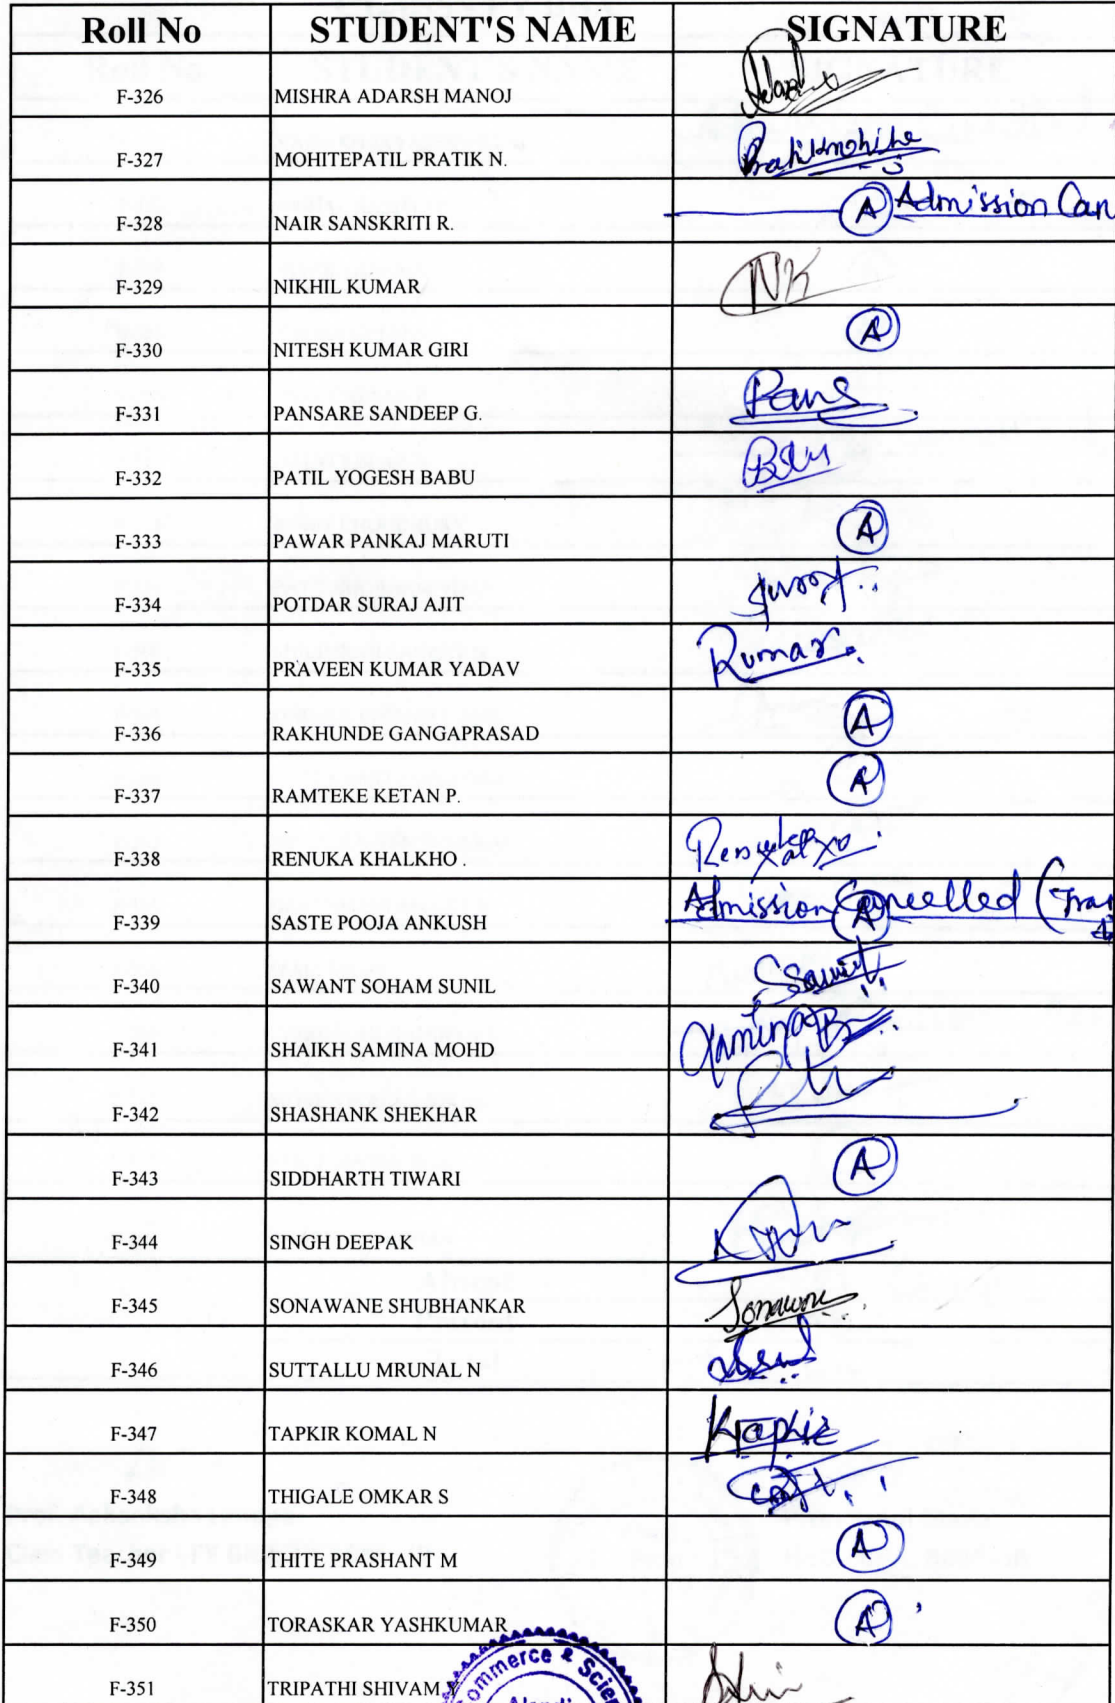 Roll No STUDENT'S NAME SIGNATURE
F-326 MISHRA ADARSH MANOJ
F-327 MOHITEPATIL PRATIK N. Pratikmohite
F-328 NAIR SANSKRITI R. A Admission Can
F-329 NIKHIL KUMAR NK
F-330 NITESH KUMAR GIRI A
F-331 PANSARE SANDEEP G. Pans
F-332 PATIL YOGESH BABU
F-333 PAWAR PANKAJ MARUTI A
F-334 POTDAR SURAJ AJIT
F-335 PRAVEEN KUMAR YADAV Kumar
F-336 RAKHUNDE GANGAPRASAD A
F-337 RAMTEKE KETAN P. A
F-338 RENUKA KHALKHO .
F-339 SASTE POOJA ANKUSH Admission Cancelled (Tran A
F-340 SAWANT SOHAM SUNIL SSawant
F-341 SHAIKH SAMINA MOHD
F-342 SHASHANK SHEKHAR
F-343 SIDDHARTH TIWARI A
F-344 SINGH DEEPAK
F-345 SONAWANE SHUBHANKAR Sonawane
F-346 SUTTALLU MRUNAL N
F-347 TAPKIR KOMAL N Ktapkir
F-348 THIGALE OMKAR S
F-349 THITE PRASHANT M A
F-350 TORASKAR YASHKUMAR A
F-351 TRIPATHI SHIVAM
ommerce & Scien
Alandi